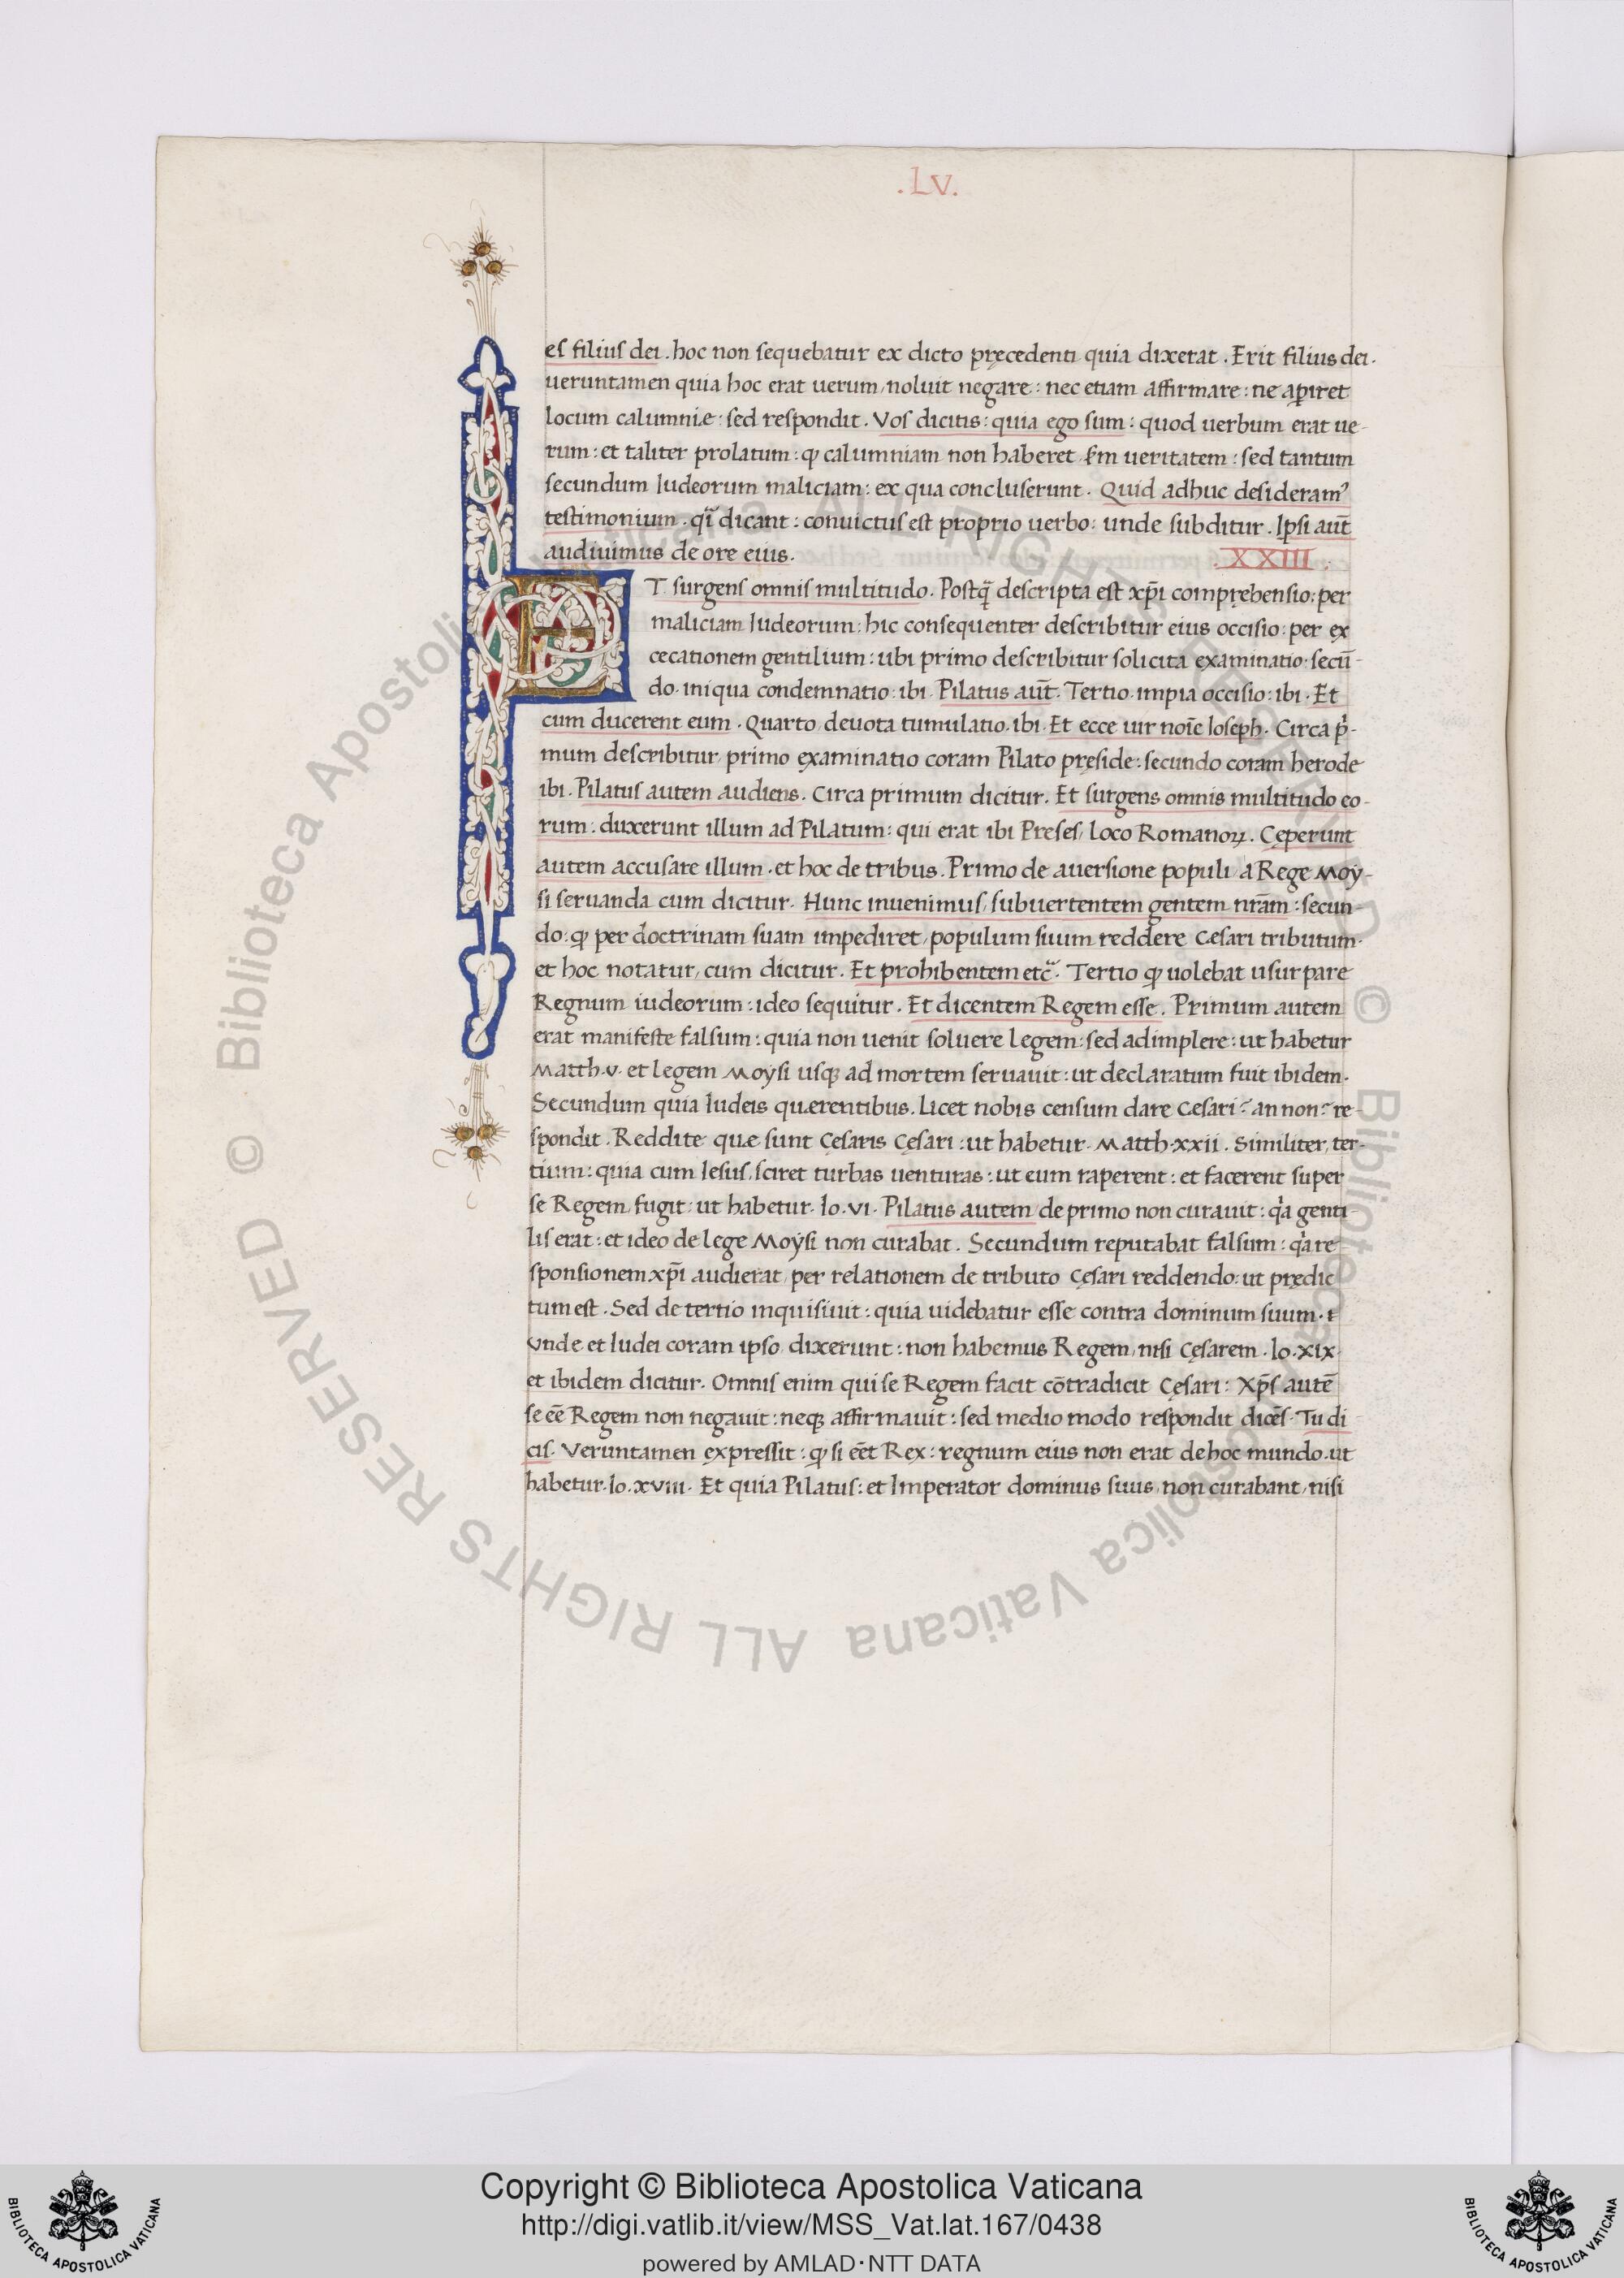 .LV.
es filius dei . hoc non sequebatur ex dicto pręcedenti quia dixerat . Erit filius dei .
ueruntamen quia hoc erat uerum, noluit negare : nec etiam affirmare : ne aꝑiret
locum calumniæ : sed respondit . Vos dicitis : quia ego sum : quod uerbum erat ue-
rum : et taliter prolatum : ꝙ calumniam non haberet, ẜm ueritatem : sed tantum
secundum Iudeorum maliciam : ex qua concluserunt . Quid adhuc desideramꝰ
testimonium . q̃i dicant : conuictus est proprio uerbo : unde subditur . Ipsi aut̃
audiuimus de ore eius .
. XXIII .
ET surgens omnis multitudo . Postq̃ descripta est xp̃i comprehensio : per
maliciam Iudeorum : hic consequenter describitur eius occisio : per ex
cecationem gentilium : ubi primo describitur solicita examinatio : secũ-
do . iniqua condemnatio : ibi . Pilatus aut̃ . Tertio . impia occisio : ibi . Et
cum ducerent eum . Quarto, deuota tumulatio . ibi . Et ecce uir noĩe Ioseph . Circa p̓-
mum describitur, primo examinatio coram Pilato pręside : secundo coram herode
ibi . Pilatus autem audiens . Circa primum dicitur . Et surgens omnis multitudo eo-
rum : duxerunt illum ad Pilatum : qui erat ibi Preses, loco Romanoꝝ . Cęperunt
autem accusare illum . et hoc de tribus . Primo de auersione populi, a Rege Moẏ-
si seruanda cum dicitur . Hunc inuenimus, subuertentem gentem nr̃am : secun-
do : ꝙ per doctrinam suam impediret, populum suum reddere Cesari tributum .
et hoc notatur, cum dicitur . Et prohibentem etc̃ . Tertio ꝙ uolebat usurpare
Regnum iudeorum : ideo sequitur . Et dicentem Regem esse . Primum autem
erat manifeste falsum : quia non uenit soluere legem : sed adimplere : ut habetur
Matth . v . et legem Moẏsi usqꝫ ad mortem seruauit : ut declaratum fuit ibidem .
Secundum quia Iudeis quærentibus . Licet nobis censum dare Cesari ? an non ? re-
spondit . Reddite quæ sunt Cęsaris Cęsari : ut habetur . Matth . xxii . Similiter, ter-
tium : quia cum Iesus, sciret turbas uenturas : ut eum raperent : et facerent super
se Regem, fugit : ut habetur . Io . vi . Pilatus autem, de primo non curauit : q̓a genti
lis erat : et ideo de lege Moẏsi non curabat . Secundum reputabat falsum : q̓a re
sponsionem xp̃i audierat, per relationem de tributo Cęsari reddendo : ut prędic
tum est . Sed de tertio inquisiuit : quia uidebatur esse contra dominum suum .
Vnde et Iudei coram ipso, dixerunt : non habemus Regem, nisi Cęsarem . Io . xix .
et ibidem dicitur . Omnis enim qui se Regem facit cõtradicit Cęsari : Xp̃s autẽ
se eẽ Regem non negauit : neqꝫ affirmauit : sed medio modo respondit dicẽs . Tu di
cis . Veruntamen expressit : ꝙ si eẽt Rex : regnum eius non erat de hoc mundo . ut
habetur . Io . xviii . Et quia Pilatus : et Imperator dominus suus, non curabant, nisi
© Biblioteca Apostolica Vaticana ALL RIGHTS RESERVED © Biblioteca Apostolica Vaticana ALL RIGHTS RESERVED
Copyright © Biblioteca Apostolica Vaticana
http://digi.vatlib.it/view/MSS_Vat.lat.167/0438
powered by AMLAD·NTT DATA
BIBLIOTECA APOSTOLICA VATICANA
BIBLIOTECA APOSTOLICA VATICANA